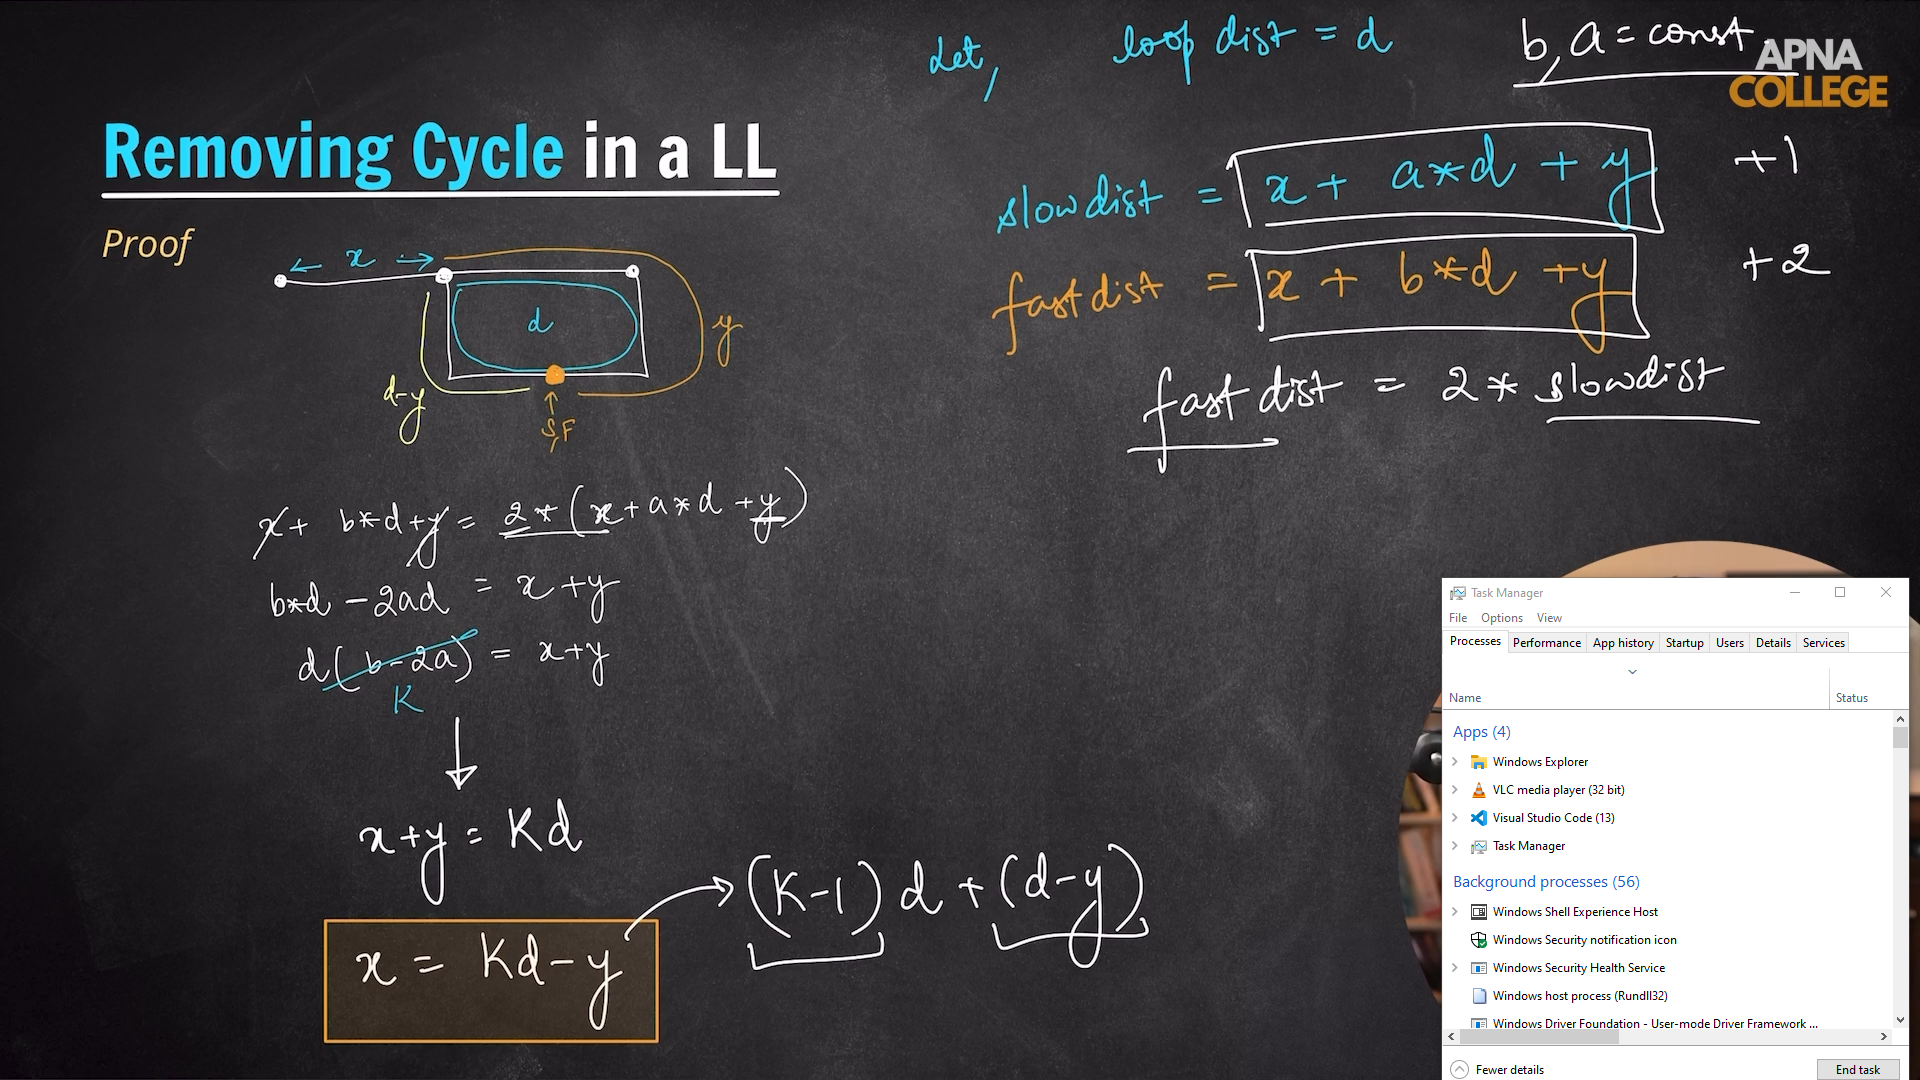 Let, loop dist = d b, a = const.
APNA
COLLEGE
Removing Cycle in a LL
Proof
slow dist = x + a*d + y +1
fast dist = x + b*d + y +2
fast dist = 2 * slowdist
← x →
d
y
d-y
↑
S,F
x + b*d + y = 2*(x + a*d + y)
b*d - 2ad = x + y
d(b-2a) = x+y
K
↓
x+y = Kd
x = Kd-y → (K-1) d + (d-y)
Task Manager
File Options View
Processes Performance App history Startup Users Details Services
Name Status
Apps (4)
Windows Explorer
VLC media player (32 bit)
Visual Studio Code (13)
Task Manager
Background processes (56)
Windows Shell Experience Host
Windows Security notification icon
Windows Security Health Service
Windows host process (Rundll32)
Windows Driver Foundation - User-mode Driver Framework ...
Fewer details End task